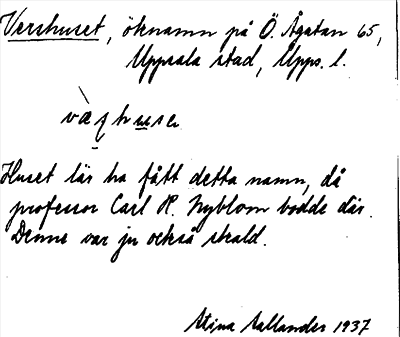 Vershuset, öknamn på Ö. Ågatan 65,
Uppsala stad, Upps. l.
Huset lär ha fått detta namn, då
professor Carl R. Nyblom bodde där.
Denne var ju också skald.
Stina Hallander 1937